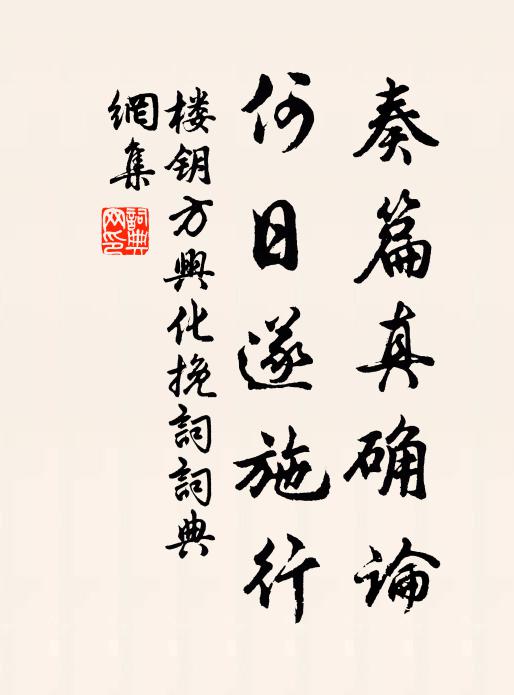 奏篇真确論
何日遂施行
楼钥方興化挽詞詞典
網集
詞典
网印